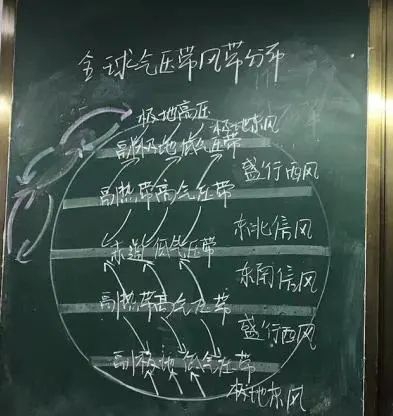 全球气压带风带分布
极地高压
极地东风
副极地低气压带
盛行西风
副热带高气压带
东北信风
赤道低气压带
东南信风
副热带高气压带
盛行西风
副极地低气压带
极地东风